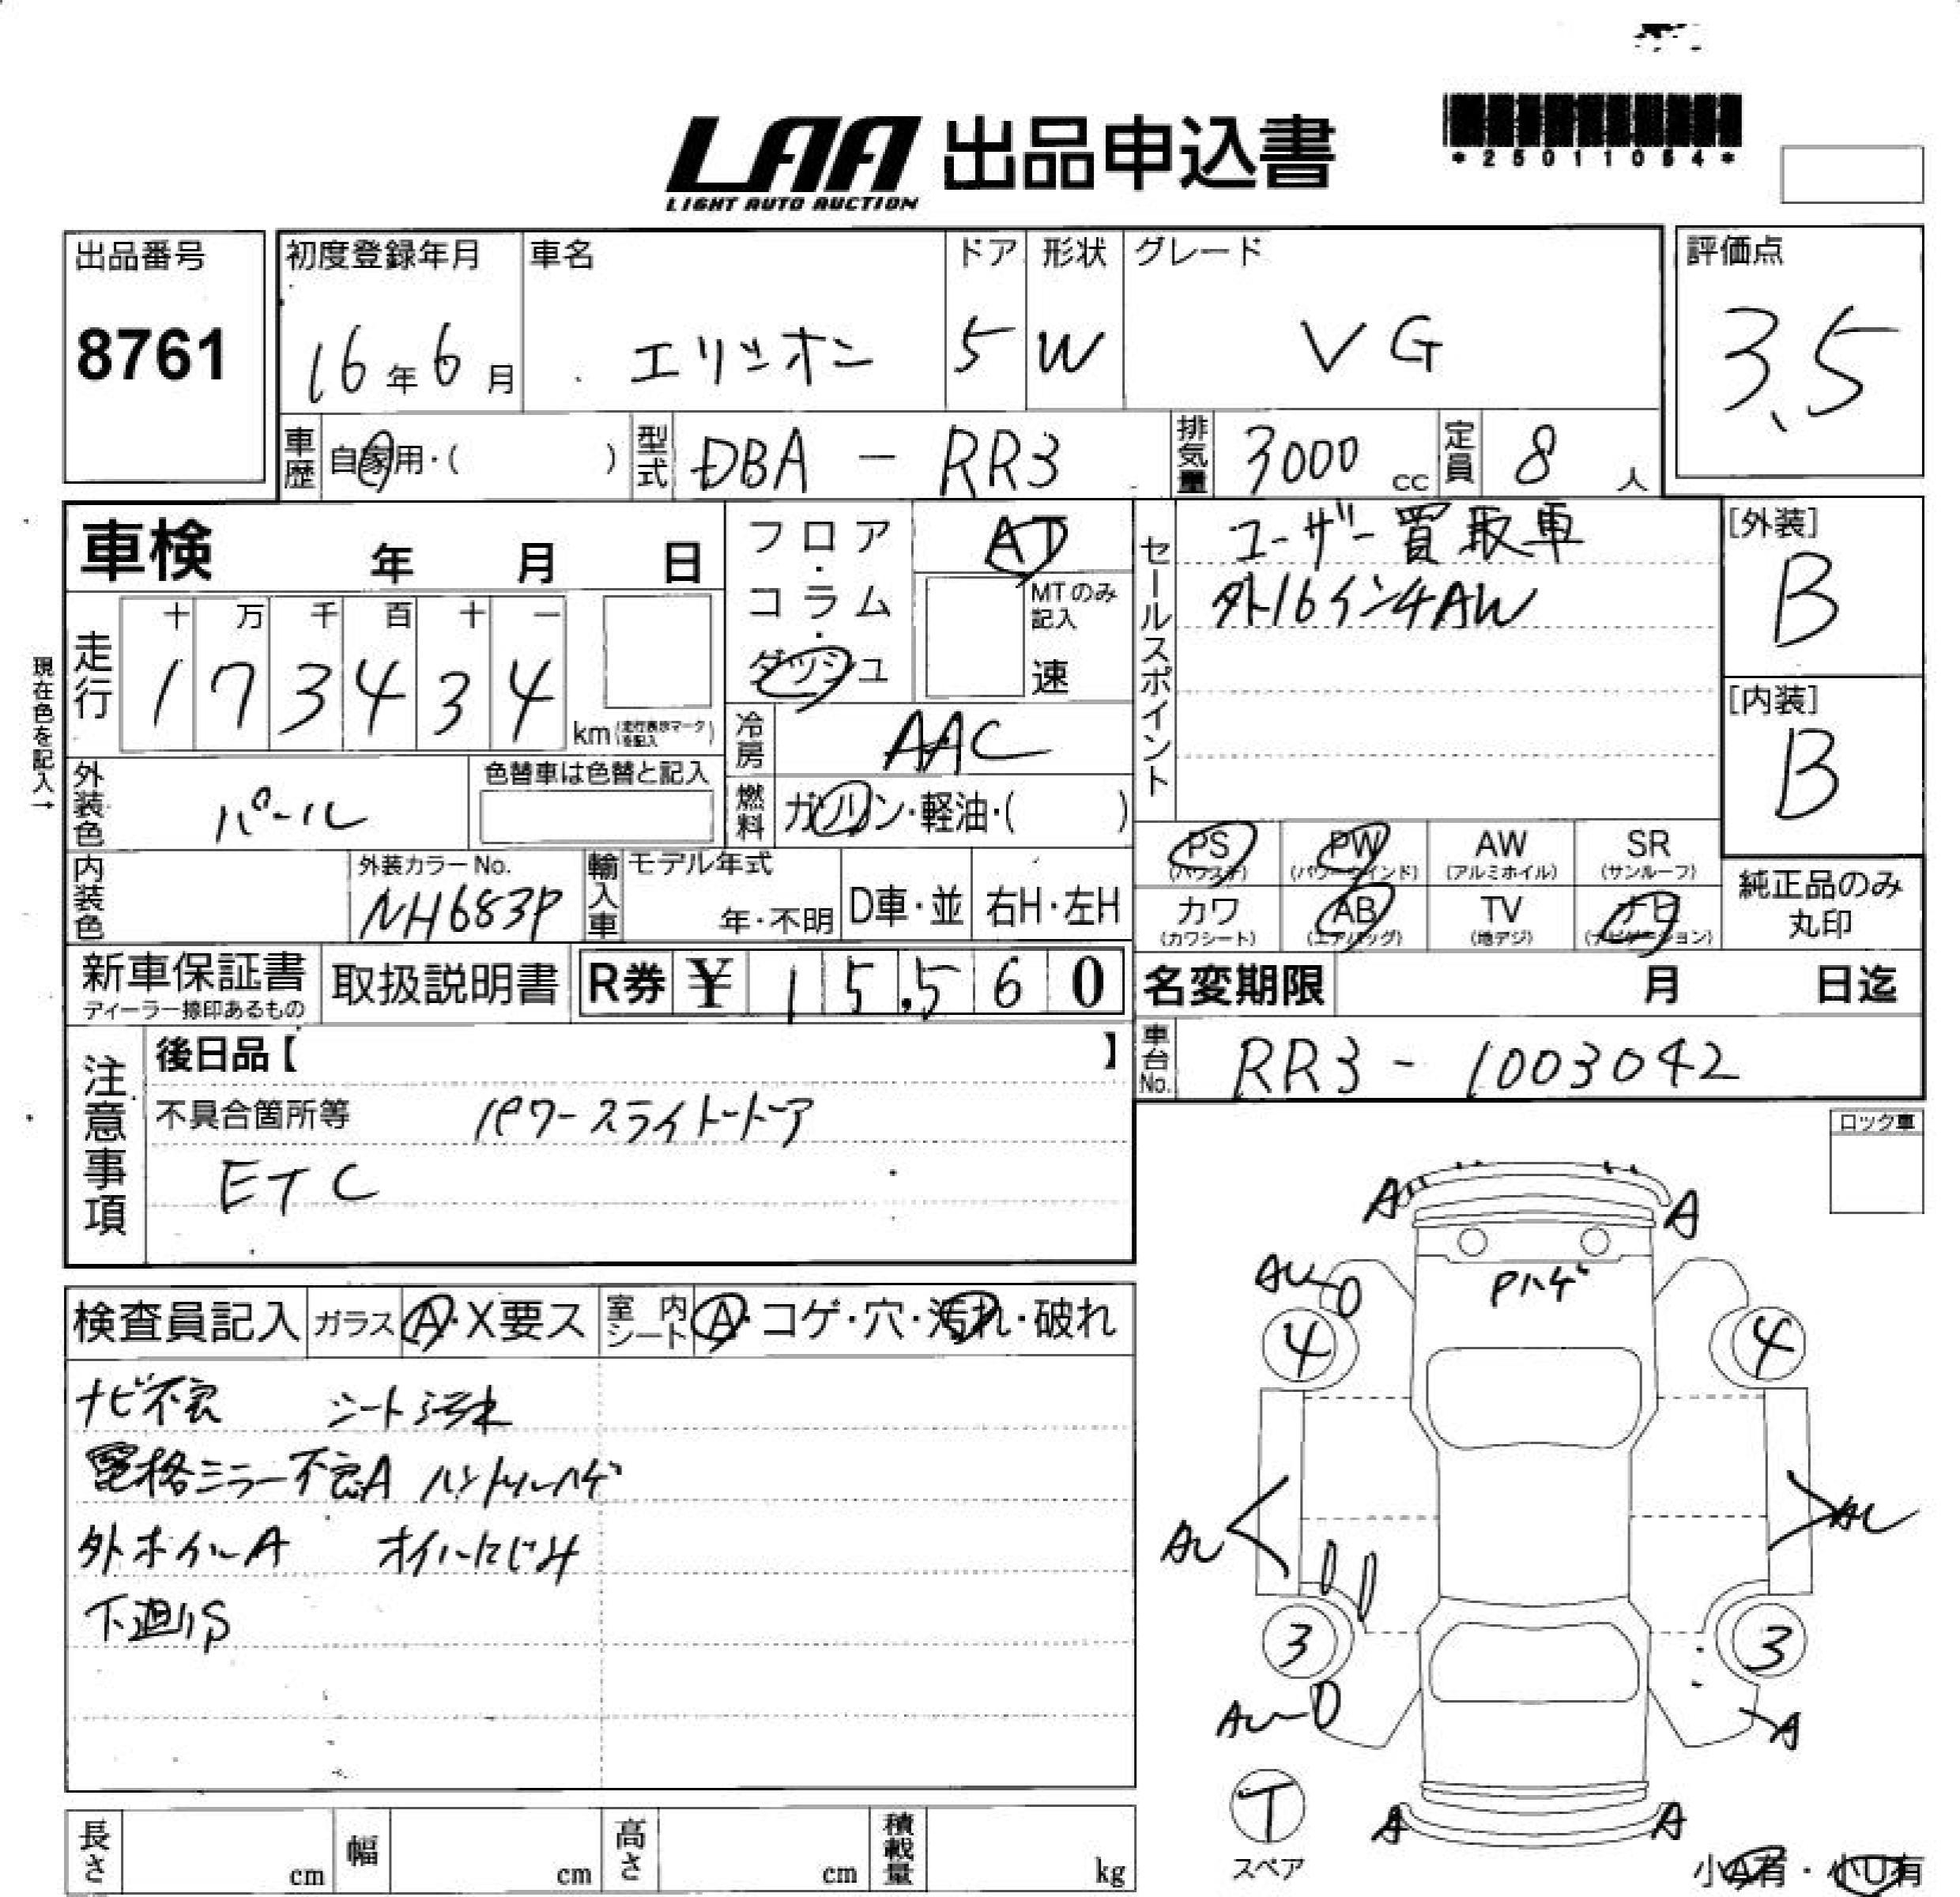 LAA 出品申込書
LIGHT AUTO AUCTION
*25011054*
出品番号 8761
初度登録年月 16年6月
車名 エリシオン
ドア 5
形状 W
グレード VG
評価点 3.5
車歴 自家用・( )
型式 DBA - RR3
排気量 3000 cc
定員 8 人
車検 年 月 日
フロア・コラム・ダッシュ
AT
MTのみ記入 速
セールスポイント
ユーザー買取車
外16インチAW
[外装] B
[内装] B
現在色を記入→
走行 十 万 千 百 十 一
1 7 3 4 3 4 km (走行表示マークを記入)
冷房 AAC
外装色 パール
色替車は色替と記入
燃料 ガソリン・軽油・( )
内装色
外装カラーNo. NH683P
輸入車 モデル年式 年・不明 D車・並 右H・左H
PS (パワステ) PW (パワーウインド) AW (アルミホイル) SR (サンルーフ)
カワ (カワシート) AB (エアバッグ) TV (地デジ) ナビ (ナビゲーション)
純正品のみ丸印
新車保証書 ディーラー捺印あるもの
取扱説明書
R券 ¥ 15,560
名変期限 月 日迄
車台No. RR3 - 1003042
注意事項
後日品【 】
不具合箇所等 パワースライドドア
ETC
ロック車
検査員記入 ガラス A・X要ス 室内シート A・コゲ・穴・汚れ・破れ
ナビ不良 シート汚れ
電格ミラー不良A ハンドルハゲ
外ホイルA オイルにじみ
下廻りS
A A
AU
Pハゲ
4 4
AU AU
3 3
AU A
T
スペア
A A
小A有・小U有
長さ cm 幅 cm 高さ cm 積載量 kg